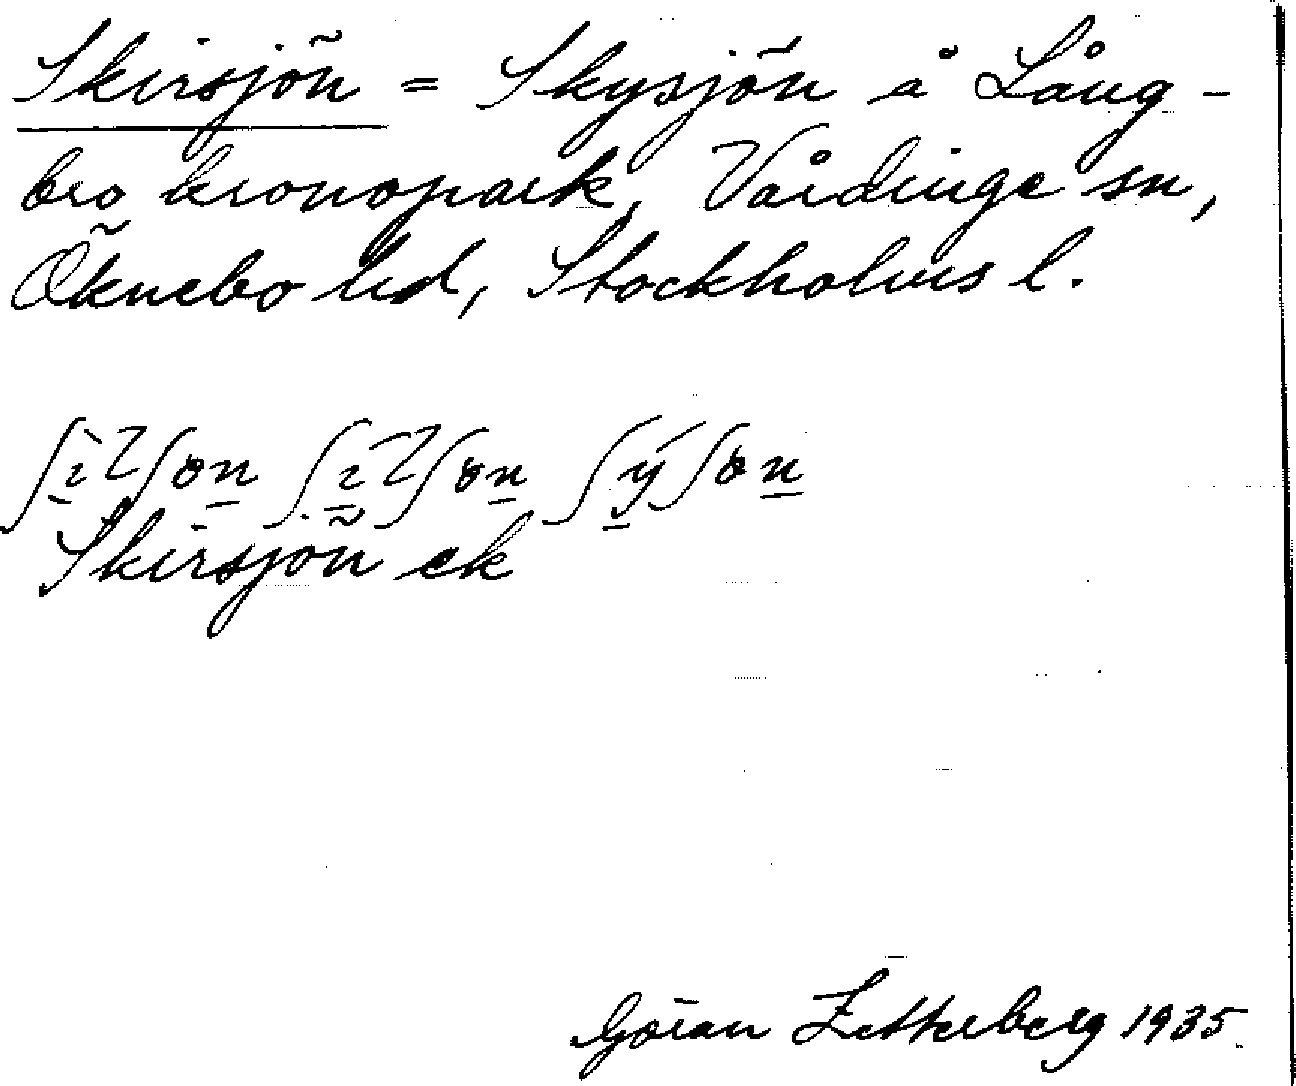 Skirsjön = Skysjön å Lång-
bro kronopark, Vårdinge sn,
Öknebo hd, Stockholms l.
Skirsjön ek
Göran Zetterberg 1935